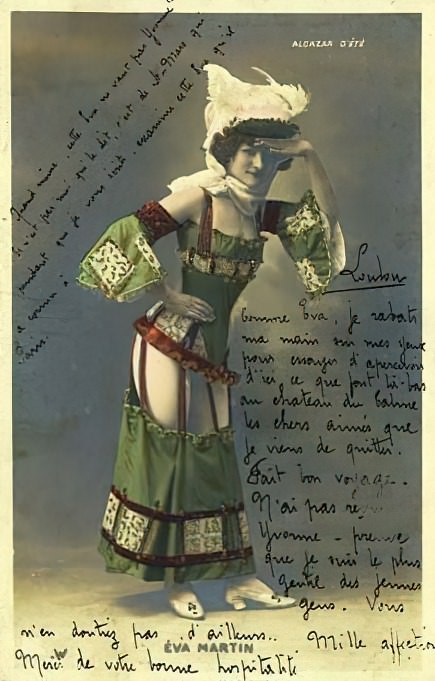 ALCAZAR D'ÉTÉ
Loudun
Comme Eva, je rabats
ma main sur mes yeux
pour essayer d'apercevoir
d'ici, ce que font là-bas
au chateau du Calme
les chers aimés que
je viens de quitter.
Fait bon voyage.
N'ai pas
Yvonne - preuve
que je suis le plus
gentil des jeunes
gens. Vous
n'en doutez pas, d'ailleurs..
Mille affection
Merci de votre bonne hospitalité
ÉVA MARTIN
Quand même, cette Eva ne vaut pas Yvonne
Ce n'est pas moi qui le dit, c'est de St-Mars qui
pendant que je vous écris, examine cette Eva qu'il
a connu à
Paris.